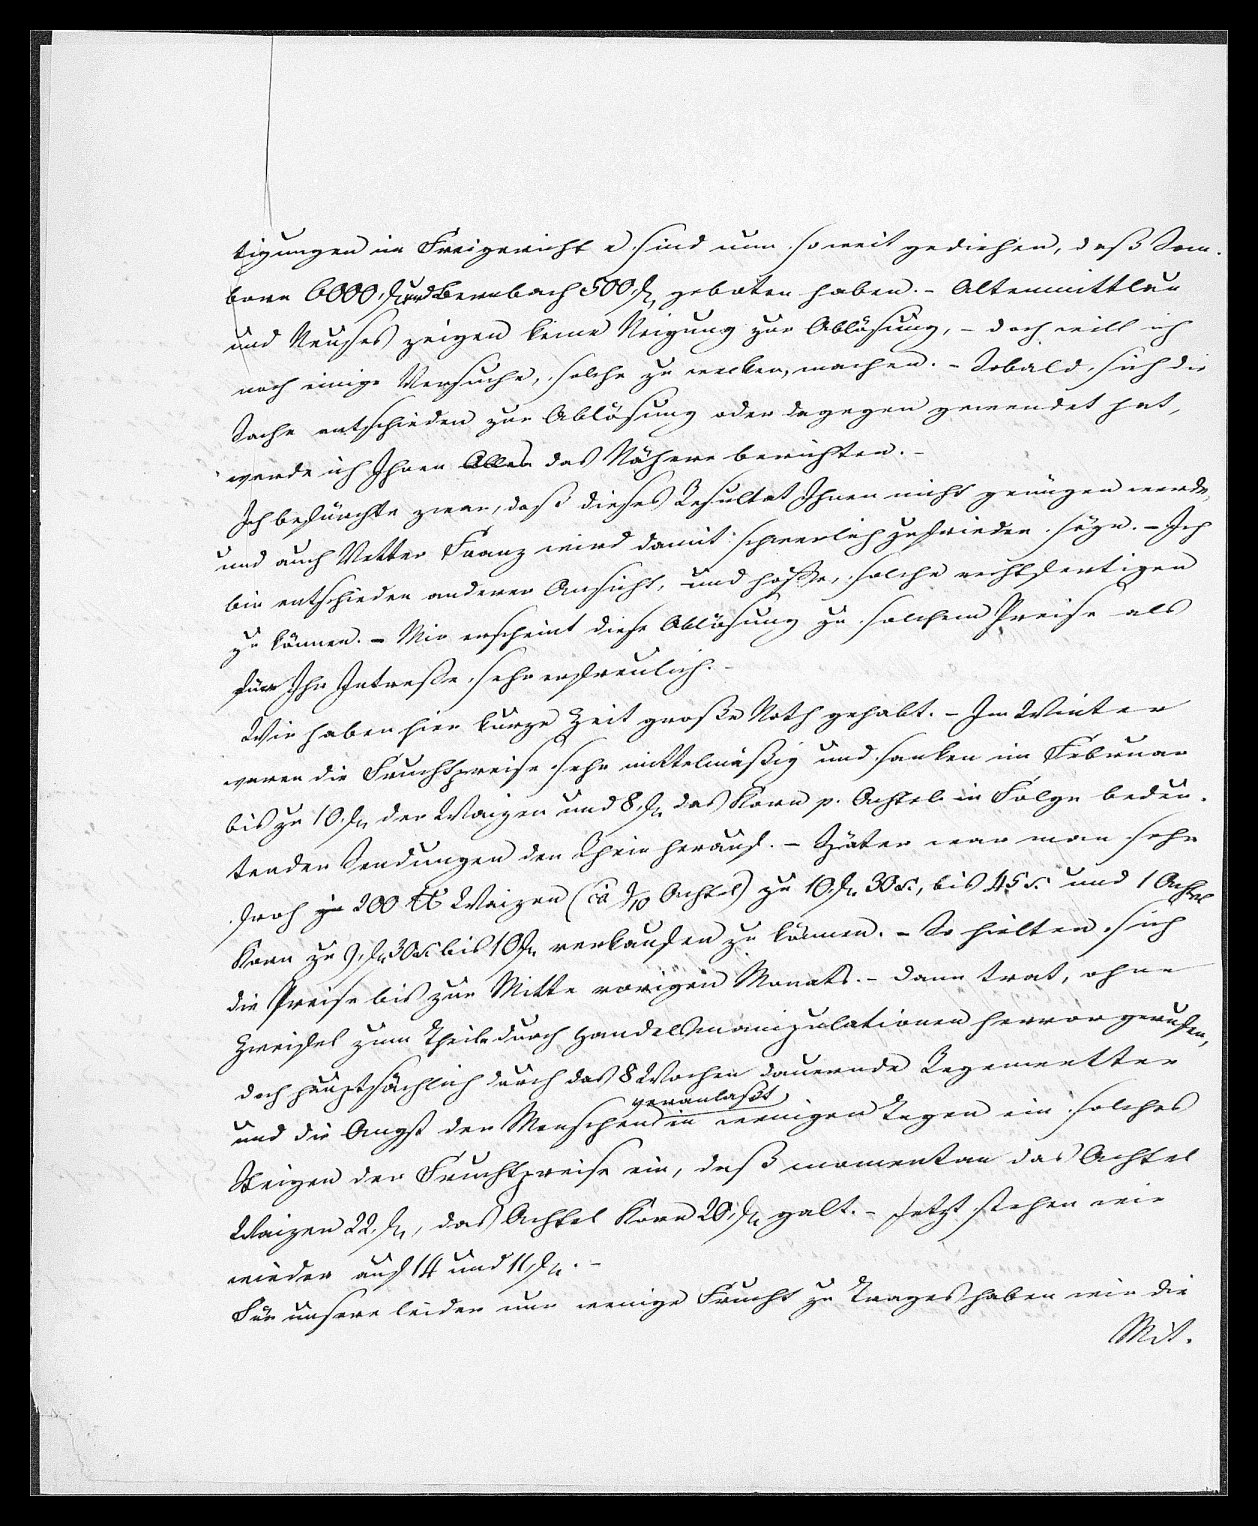 tigungen im Freigericht e sind nun soweit gediehen, daß Som-
born 6000 fl und Bernbach 500 fl, geboten haben. – Altenmittlau
und Neuses zeigen keine Neigung zur Ablösung, – doch will ich
noch einige Versuche, solche zu wecken, machen. – Sobald sich die
Sache entschieden zur Ablösung oder dagegen gewendet hat,
werde ich Ihnen Alles das Nähere berichten. –
Ich befürchte zwar, daß dieses Resultat Ihnen nicht genügen werde,
und auch Vetter Franz wird damit schwerlich zufrieden seyn. – Ich
bin entschieden anderer Ansicht, und hoffe, solche rechtfertigen
zu können. – Mir erscheint diese Ablösung zu solchem Preise als
für Ihr Intresse sehr erfreulich. –
Wir haben hier kurze Zeit große Noth gehabt. – Im Winter
waren die Fruchtpreise sehr mittelmäßig und sanken im Februar
bis zu 10 fl, der Waizen und 8 fl, das Korn p. Achtel in Folge bedeu-
tenden Sendungen den Rhein herauf. – Später war man sehr
froh je 200 ℔ Waizen (ca 9/10 Achtel) zu 10 fl, 30 x, bis 45 x und 1 Achtel
Korn zu 9 fl, 30 x bis 10 fl, verkaufen zu können. – So hielten sich
die Preise bis zur Mitte vorigen Monats. – Dann trat, ohne
Zweifel zum Theile durch Handelsmanipulationen hervorgerufen,
doch hauptsächlich durch das 8 Wochen dauernde Regenwetter
und die Angst der Menschen veranlaßt in wenigen Tagen ein solches
Steigen der Fruchtpreise ein, daß momentan das Achtel
Waizen 22 fl, das Achtel Korn 20 fl, galt. – Jetzt stehen wir
wieder auf 14 und 11 fl. –
Für unsere leider nur wenige Frucht zu Trages haben wir die
Mit-